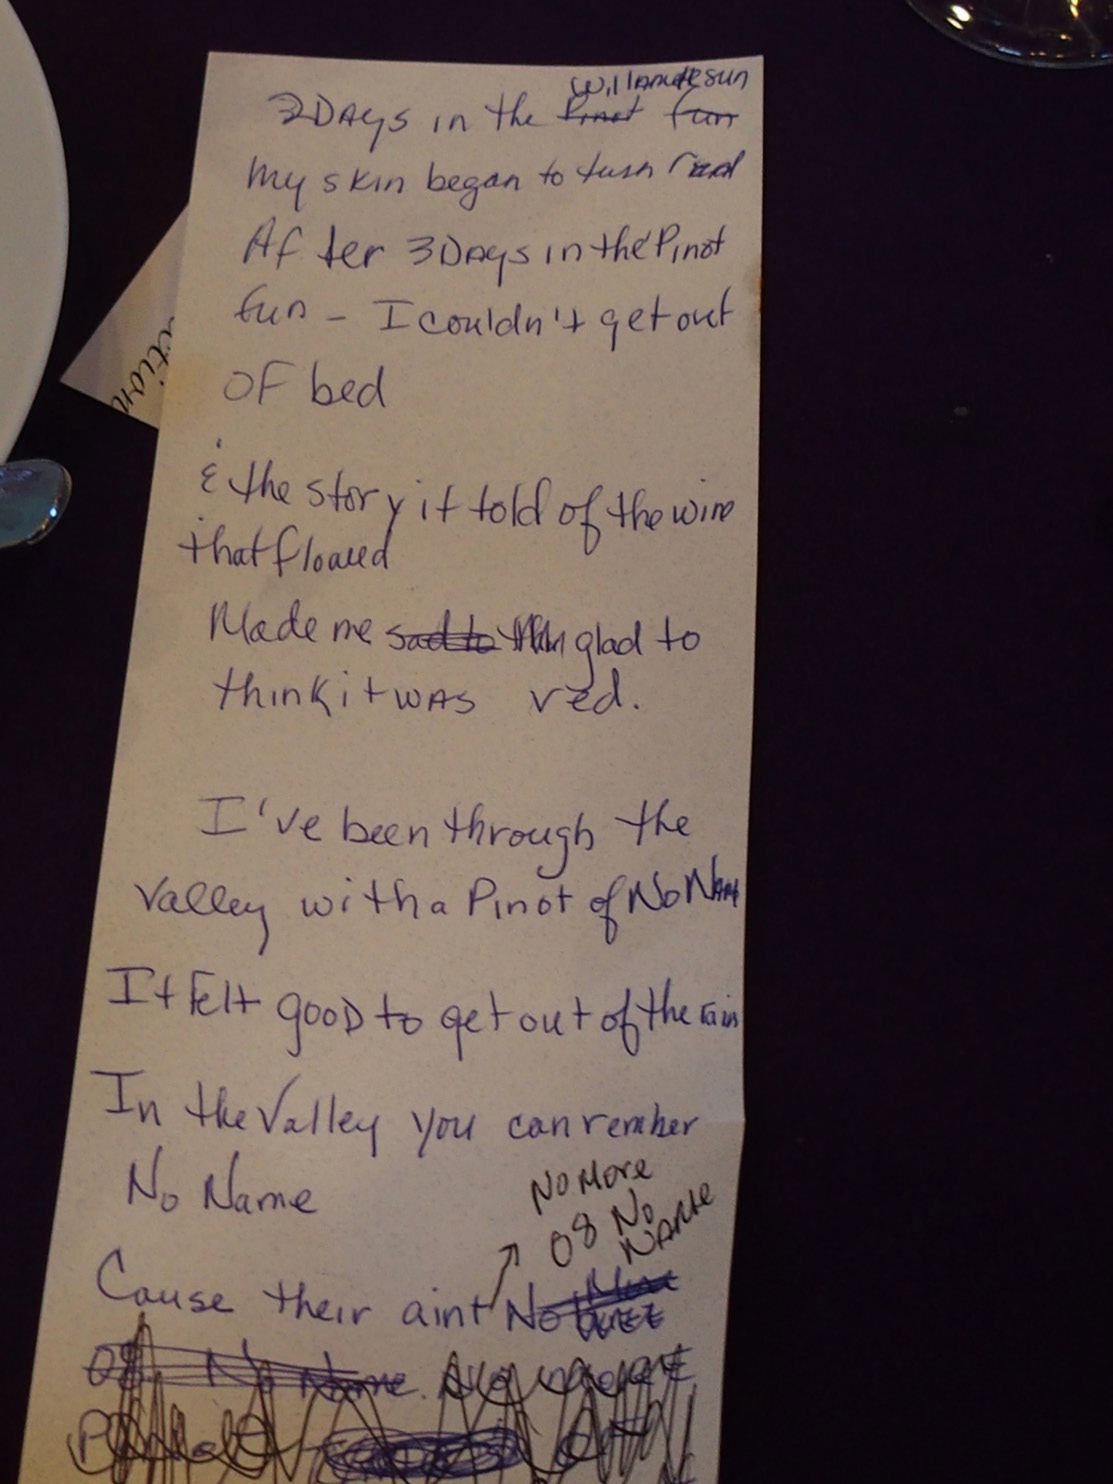 Willamette sun
3 DAYS in the Pinot fun
My skin began to turn red
After 3 DAYS in the Pinot
fun - I couldn't get out
OF bed
& the story it told of the wine
that flowed
Made me sad to glad to
think it was red.
I've been through the
Valley with a Pinot of No Name
It Felt good to get out of the rain
In the Valley you can rember
No Name
No More
08 No
NAME
Cause their aint No
08 No Name.
ction